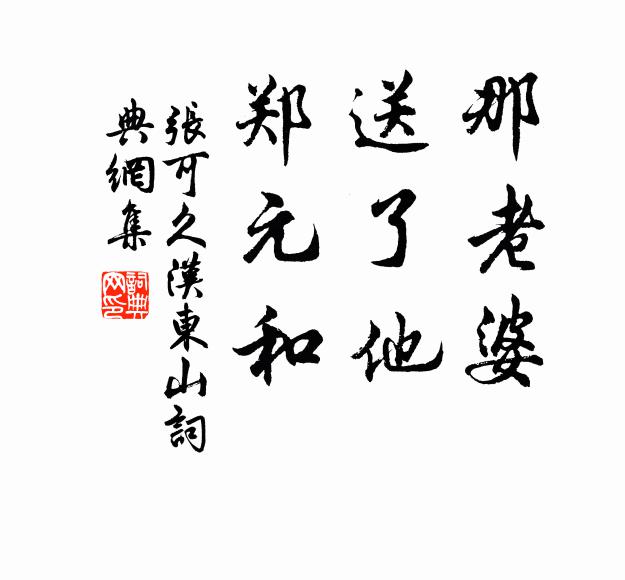 那老婆
送了他
郑元和
張可久漢東山詞
典網集
詞典网印